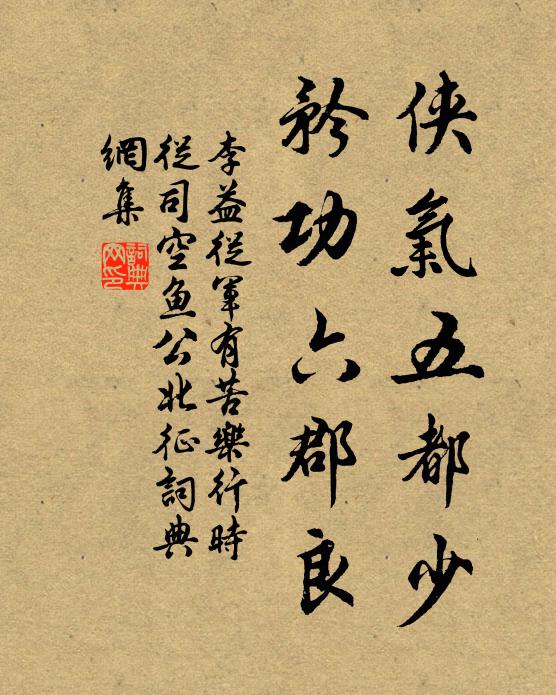 俠氣五都少
矜功六郡良
李益從軍有苦樂行時
從司空魚公北征詞典
網集
詞典
网印